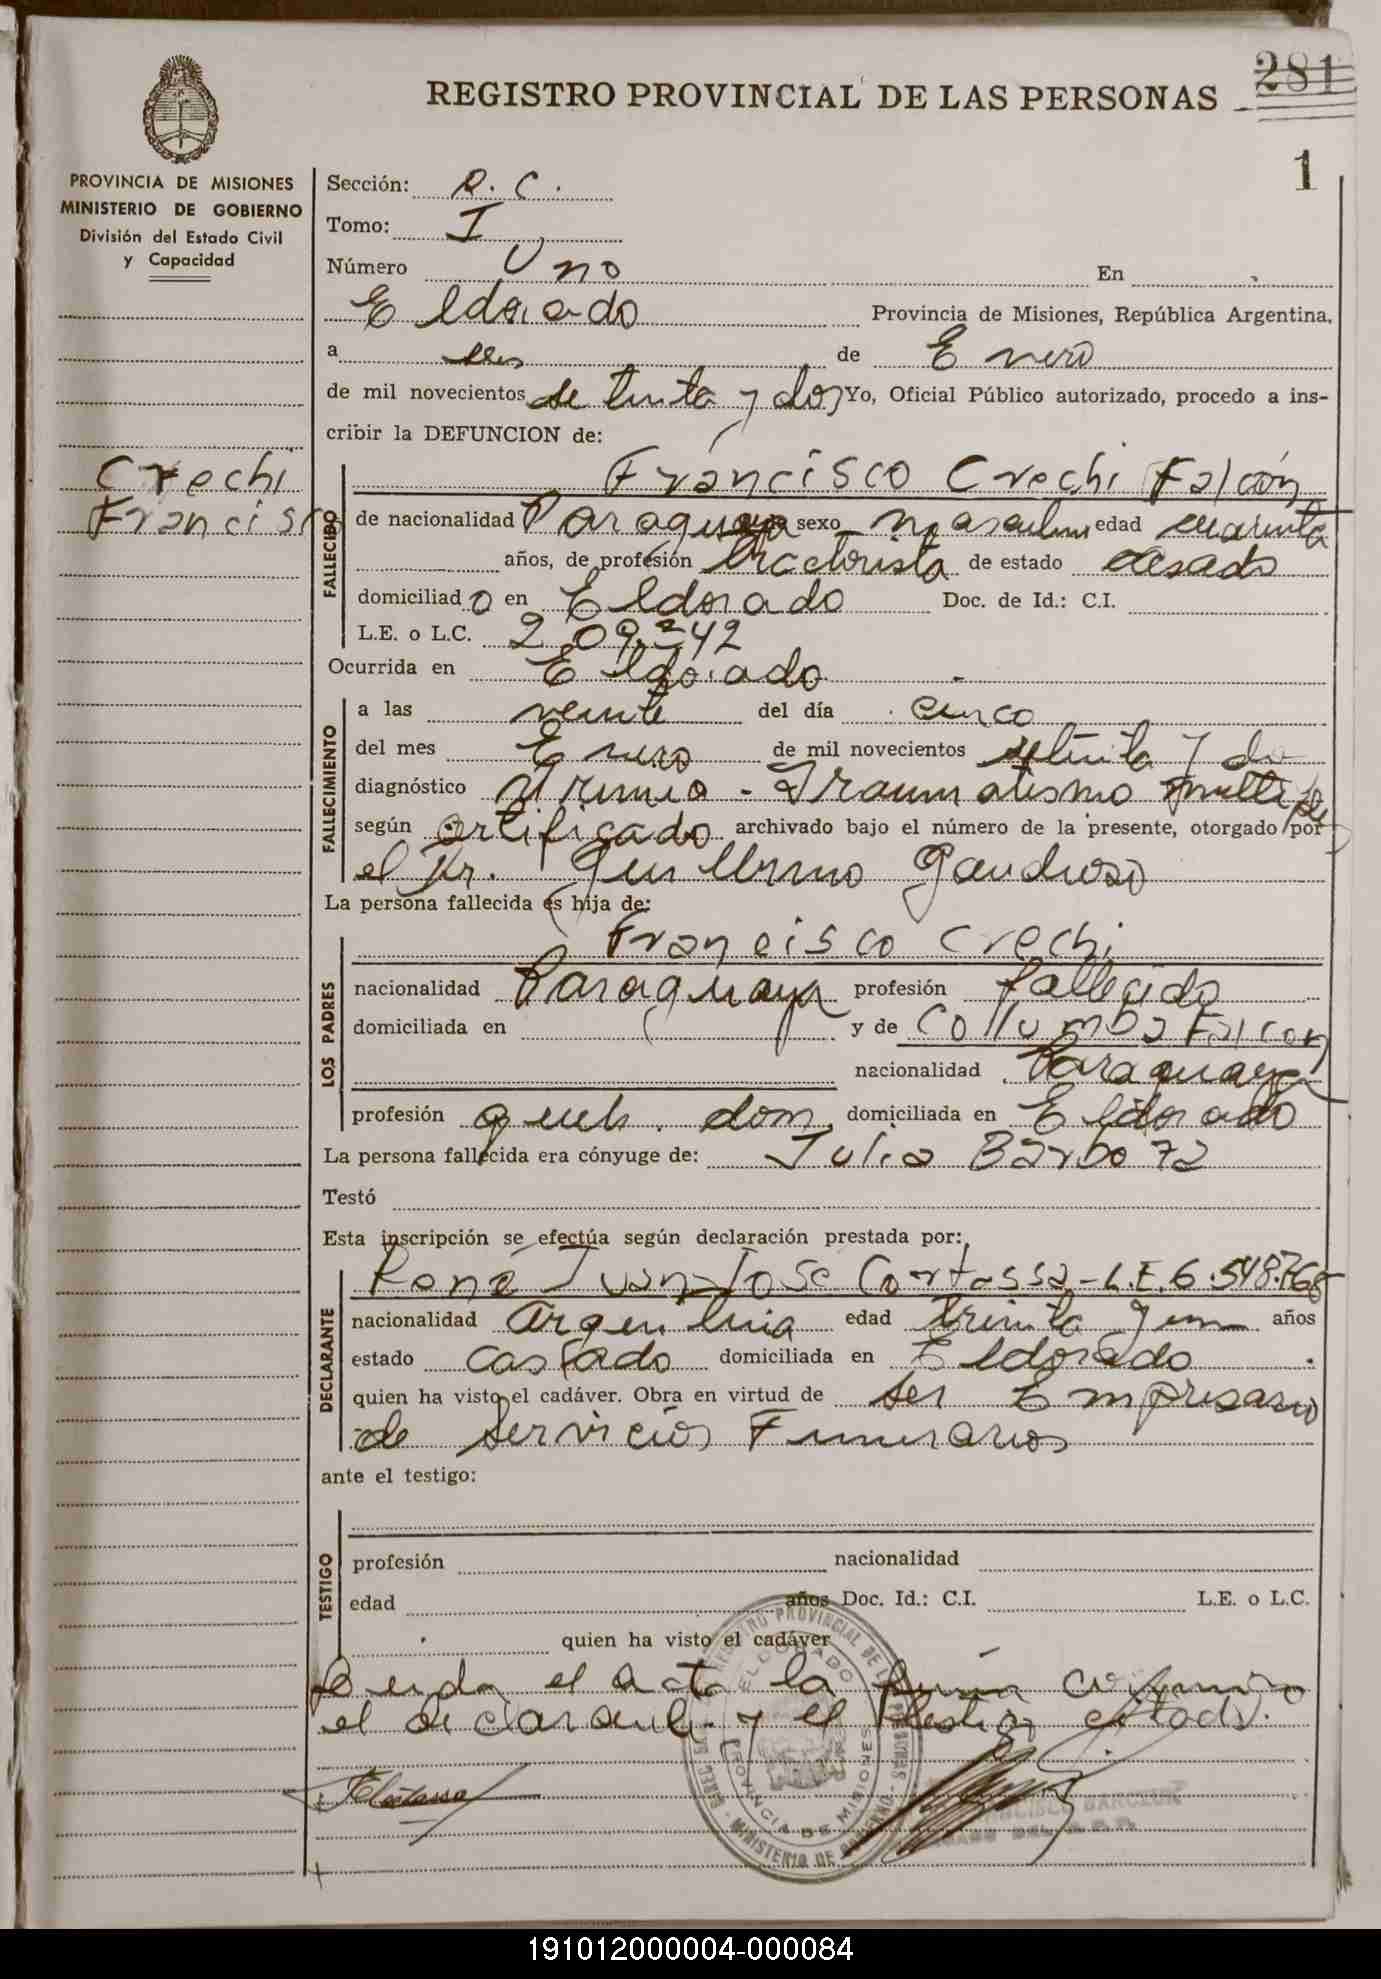 281
REGISTRO PROVINCIAL DE LAS PERSONAS
1
PROVINCIA DE MISIONES
MINISTERIO DE GOBIERNO
División del Estado Civil
y Capacidad
Crechi
Francisco
Sección: R. C.
Tomo: I
Número Uno En
Eldorado Provincia de Misiones, República Argentina,
a seis de Enero
de mil novecientos setenta y dos Yo, Oficial Público autorizado, procedo a ins-
cribir la DEFUNCION de:
FALLECIDO
Francisco Crechi Falcón
de nacionalidad Paraguaya sexo masculino edad cuarenta
años, de profesión tractorista de estado casado
domiciliado en Eldorado Doc. de Id.: C.I.
L.E. o L.C. 209.242
Ocurrida en Eldorado
FALLECIMIENTO
a las veinte del día cinco
del mes Enero de mil novecientos setenta y dos
diagnóstico Uremia - Traumatismo multiples
según certificado archivado bajo el número de la presente, otorgado por
el Dr. Guillermo Gandioso
La persona fallecida es hija de:
LOS PADRES
Francisco Crechi
nacionalidad Paraguaya profesión fallecido
domiciliada en y de Collumba Falcon
nacionalidad Paraguaya
profesión queh. dom. domiciliada en Eldorado
La persona fallecida era cónyuge de: Julia Barboza
Testó
Esta inscripción se efectúa según declaración prestada por:
DECLARANTE
René Juan José Cortassa - L.E. 6.548.768
nacionalidad Argentina edad treinta y un años
estado casado domiciliada en Eldorado
quien ha visto el cadáver. Obra en virtud de ser Empresario
de Servicios Funerarios
ante el testigo:
TESTIGO
profesión nacionalidad
edad años Doc. Id.: C.I. L.E. o L.C.
quien ha visto el cadáver
Leida el Acta la firma conmigo
el declarante y el testigo citado.
RCortassa
ELDORADO
PROVINCIA DE MISIONES
191012000004-000084